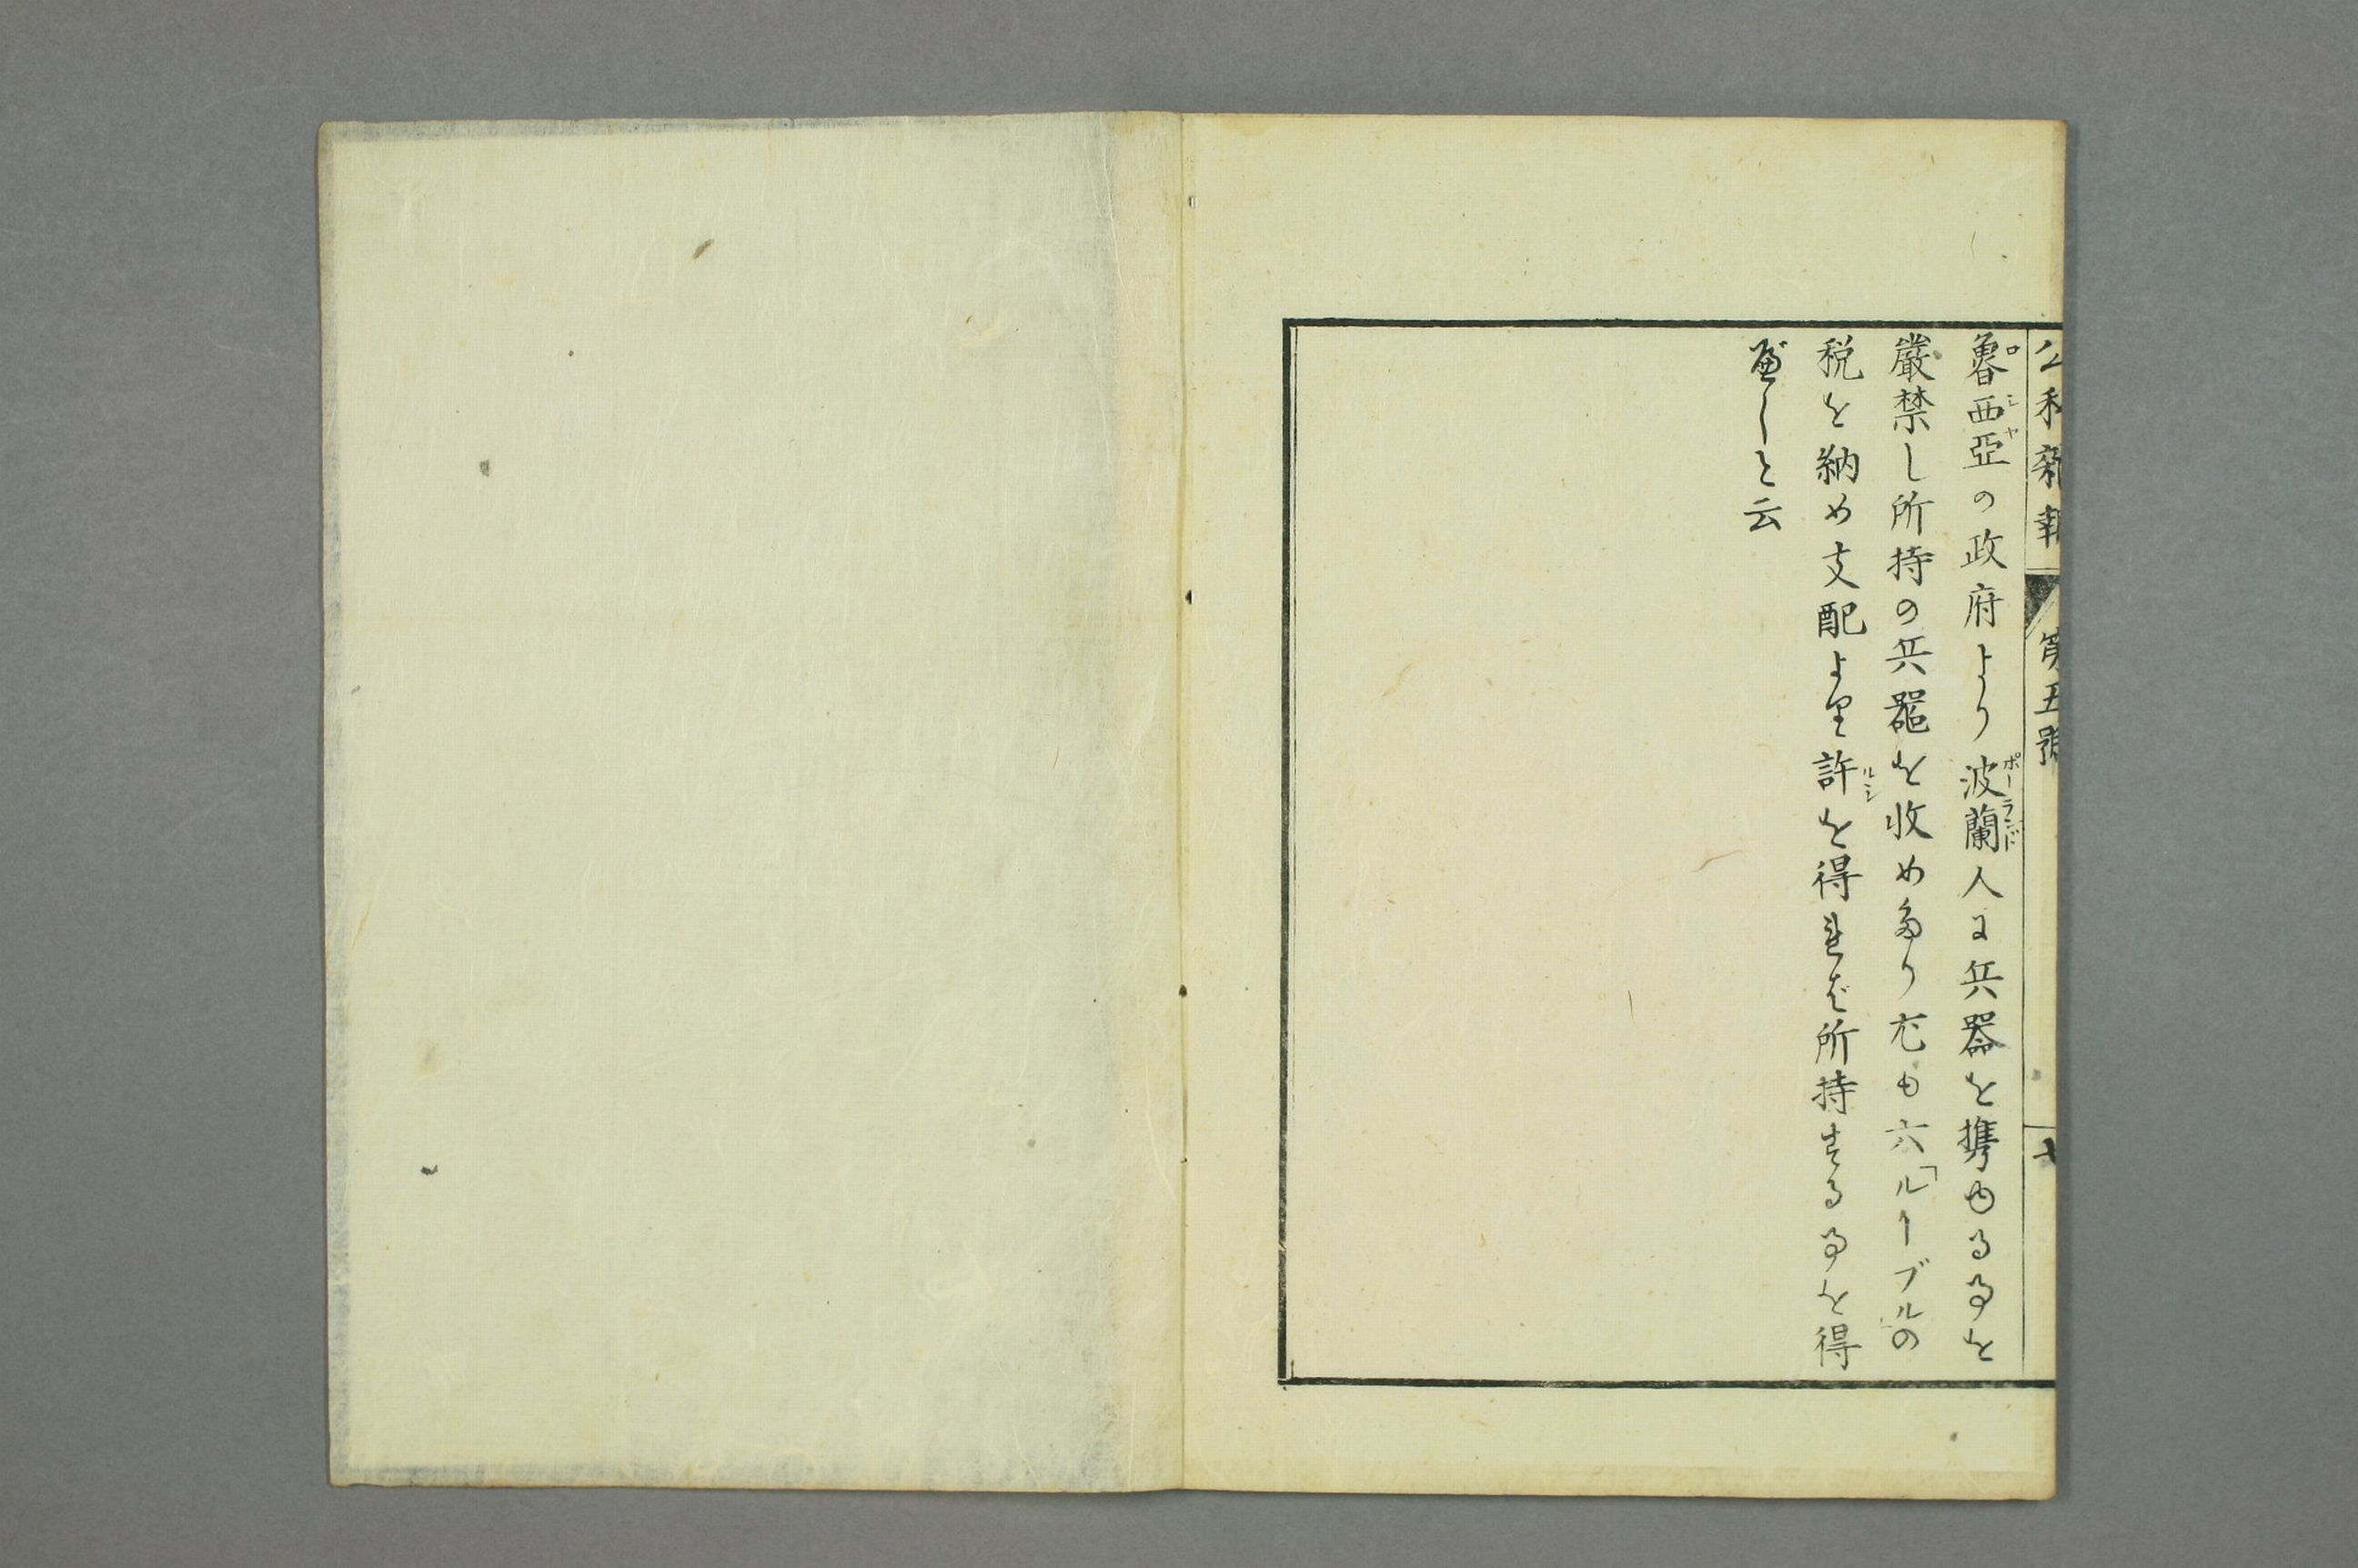 公私新報 第五號 七
魯西亞の政府より波蘭人に兵器を携ゆる事を
ロシヤ ポーランド
嚴禁し所持の兵器を收めたり尤も六「ルーブル」の
税を納め支配より許を得れば所持する事を得
ルシ
べしと云